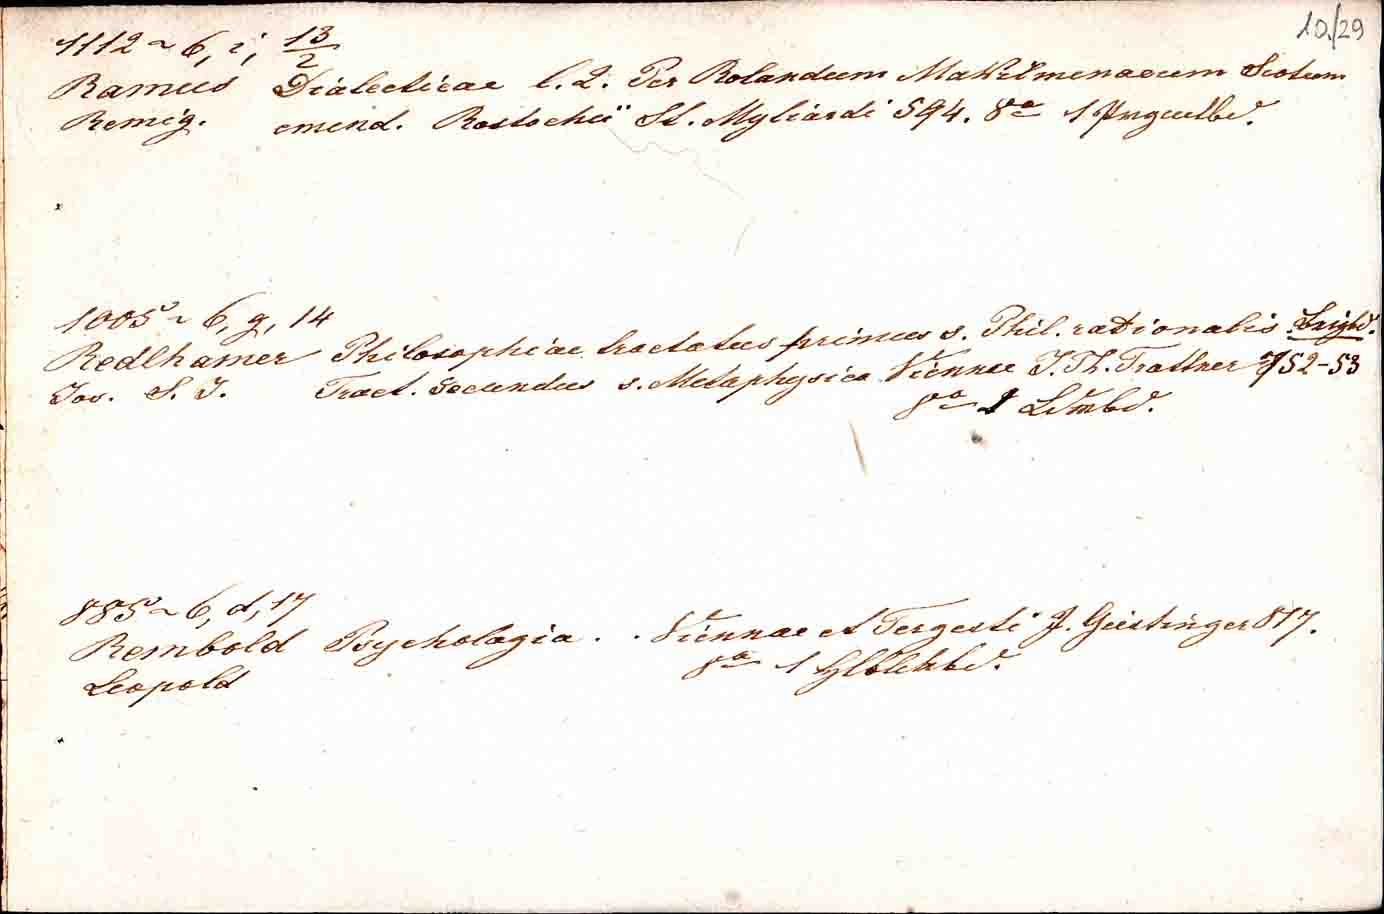 10/29
1112 ~ 6, i, 13/2
Ramus Dialecticae l. 2. Per Rolandum Makilmenaeum Scotum
Remig. emend. Rostochii St. Myliandi 594. 8° 1 Prgmtbd.
1005 ~ 6, g, 14
Redlhamer Philosophiae tractatus primus s. Phil. rationalis
Jos. S. J. Tract. secundus s. Metaphysica Viennae J. Th. Trattner 752-53
8° 1 Ldrmbd.
885 ~ 6, d, 17
Rembold Psychologia . . Viennae et Tergesti J. Geistinger 817.
Leopold 8° 1 Hlbldbd.